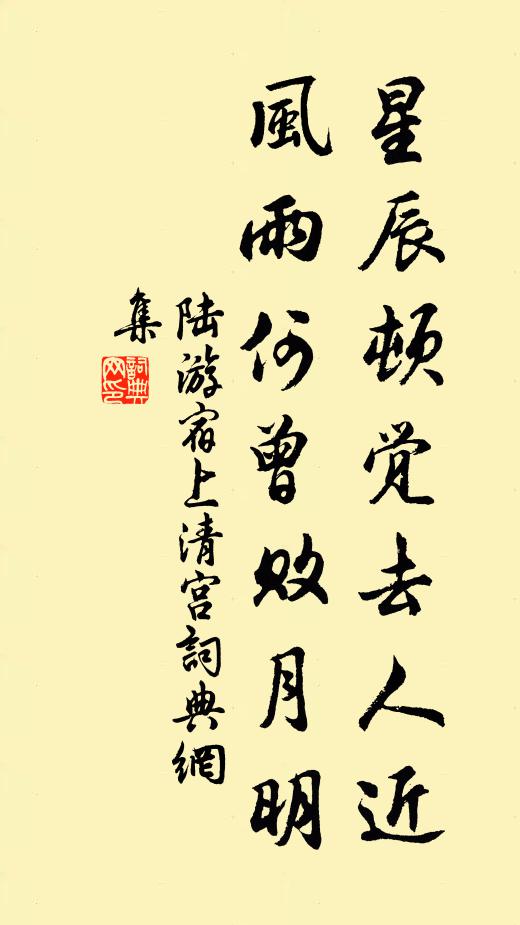 星辰頓覚去人近
風雨何曾敗月明
陆游宿上清宫詞典網
集
詞典
网印